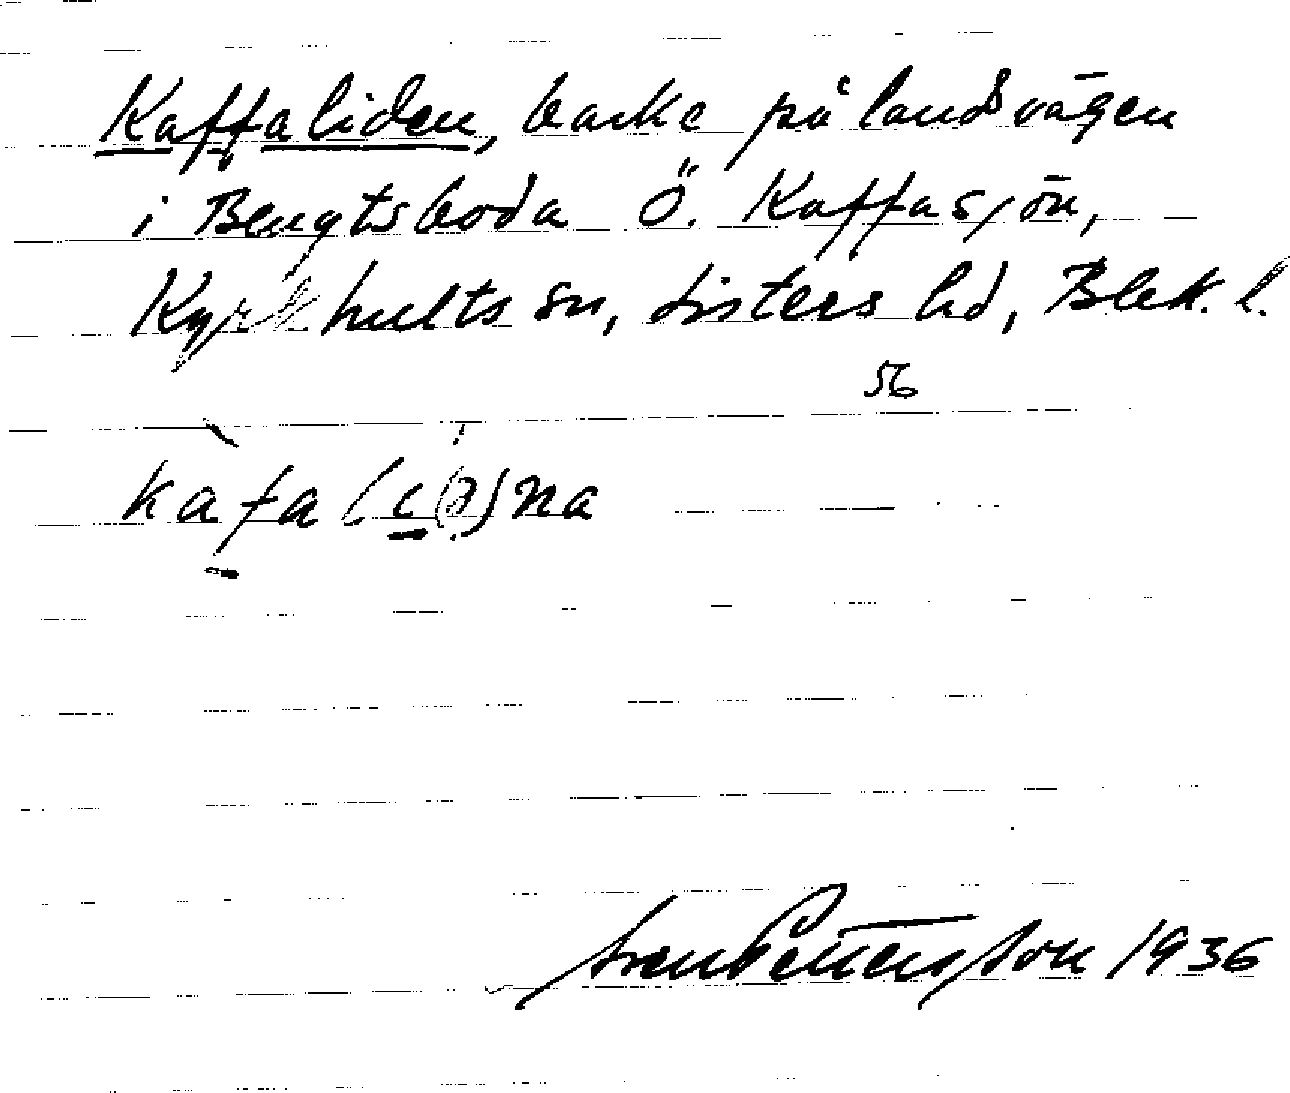 Kaffaliden, backe på landsvägen
i Bengtsboda Ö. Kaffasjön,
Kyrkhults sn, Listers hd, Blek. l.
56
Sven Pettersson 1936